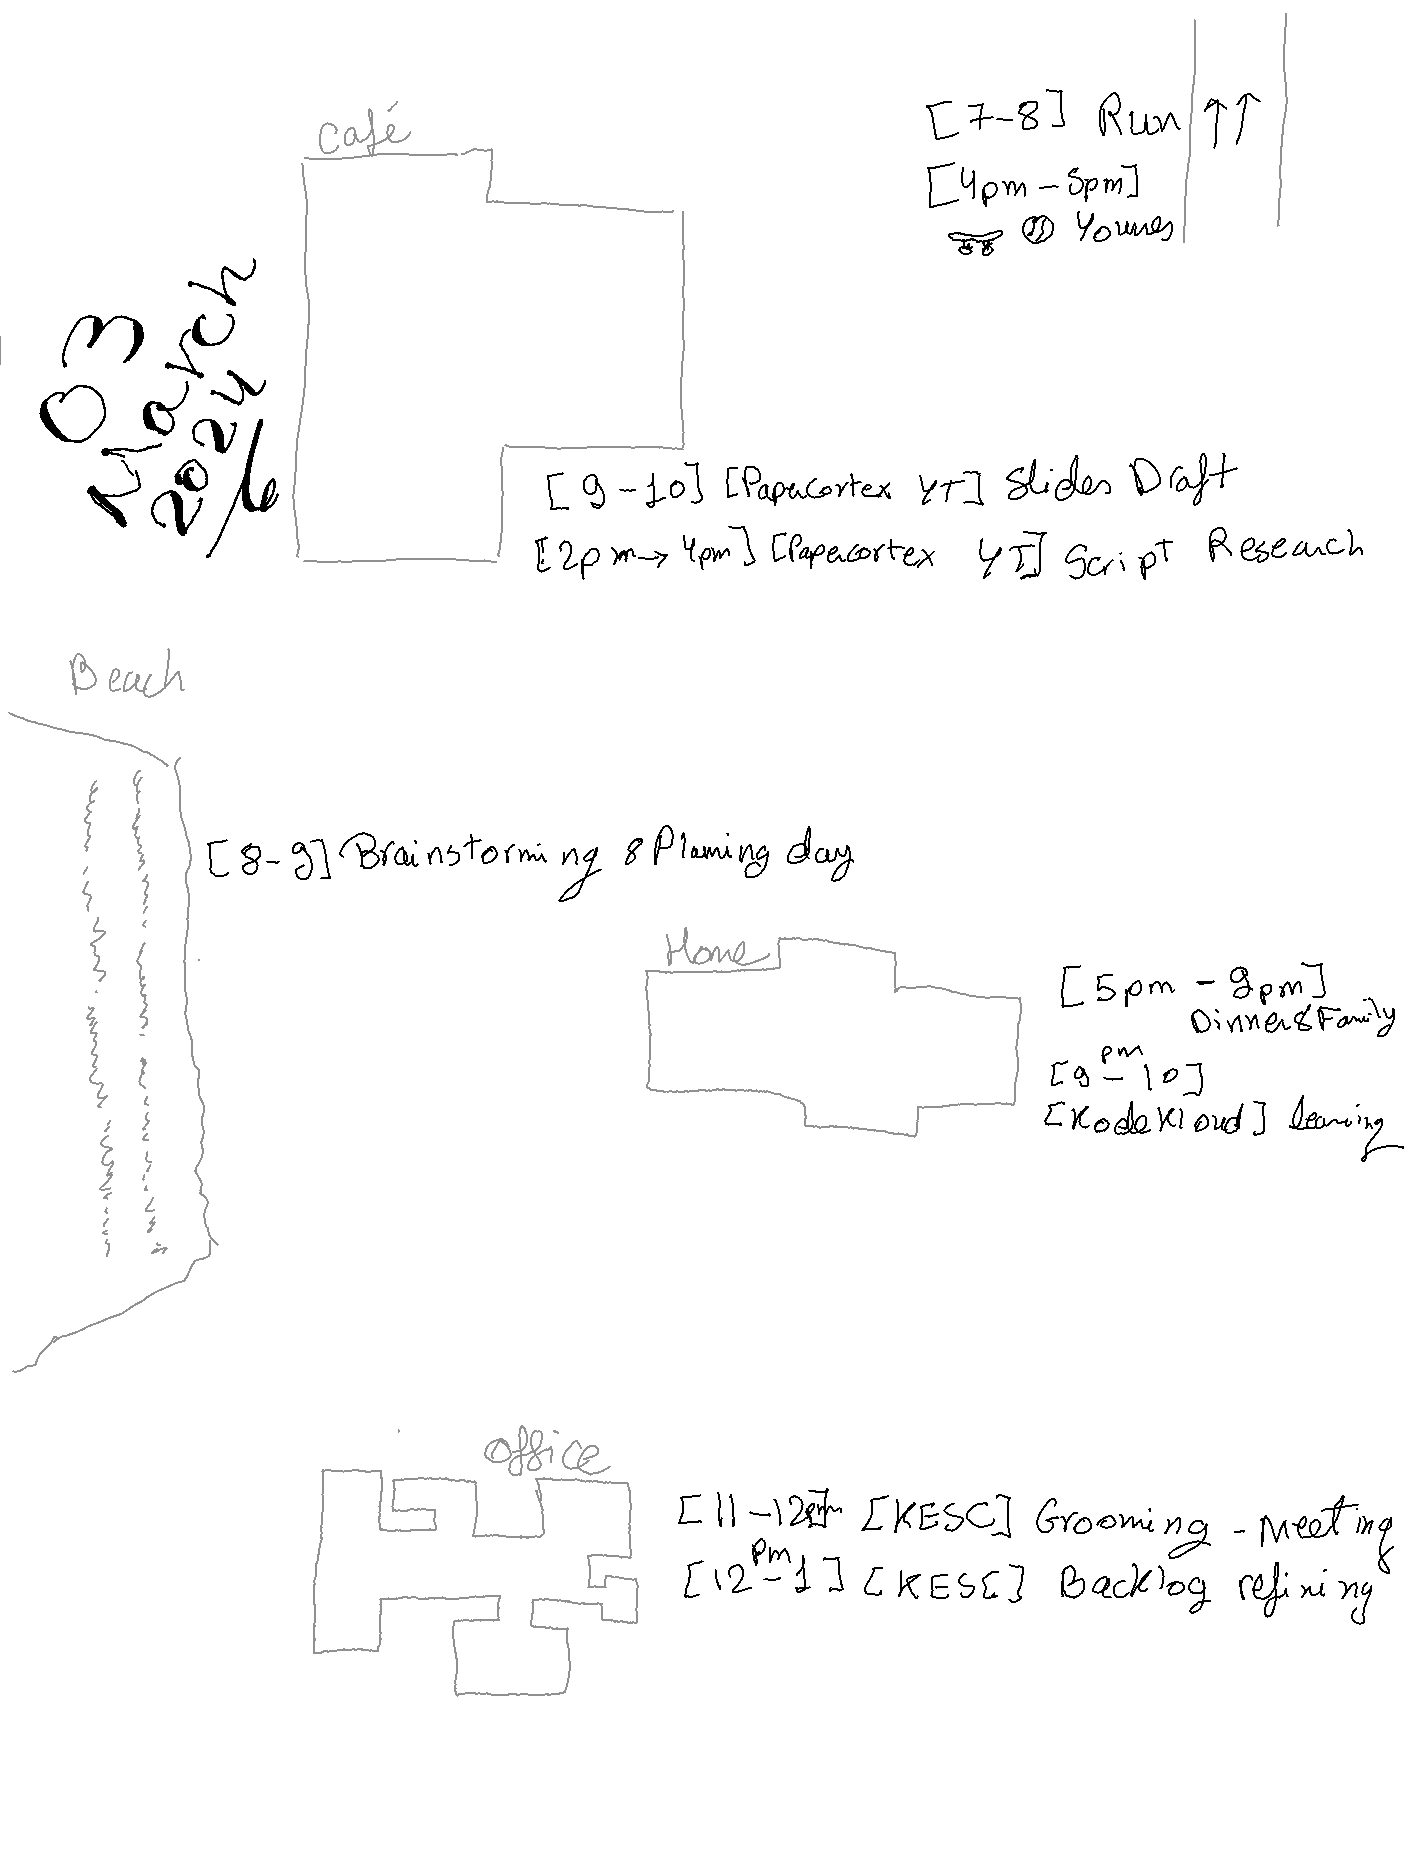 Café
[7-8] Run
[4pm-5pm]
Younes
03
March
2024
/6
[9-10] [Papercortex YT] Slides Draft
[2pm→4pm] [Papercortex YT] Script Research
Beach
[8-9] Brainstorming & Planning day
Home
[5pm - 9pm]
Dinner & Family
[9pm-10]
[KodeKloud] learning
Office
[11-12pm] [KESC] Grooming - Meeting
[12pm-1] [KESC] Backlog refining